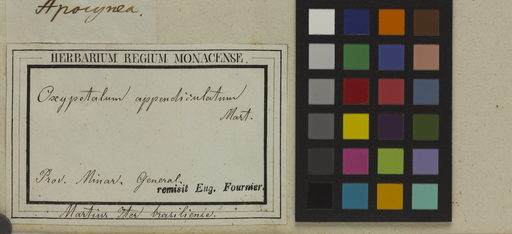 Apocynea.
HERBARIUM REGIUM MONACENSE.
Oxypetalum appendiculatum
Mart.
Prov. Minar. General.
remisit Eug. Fournier.
Martius Iter brasiliense.